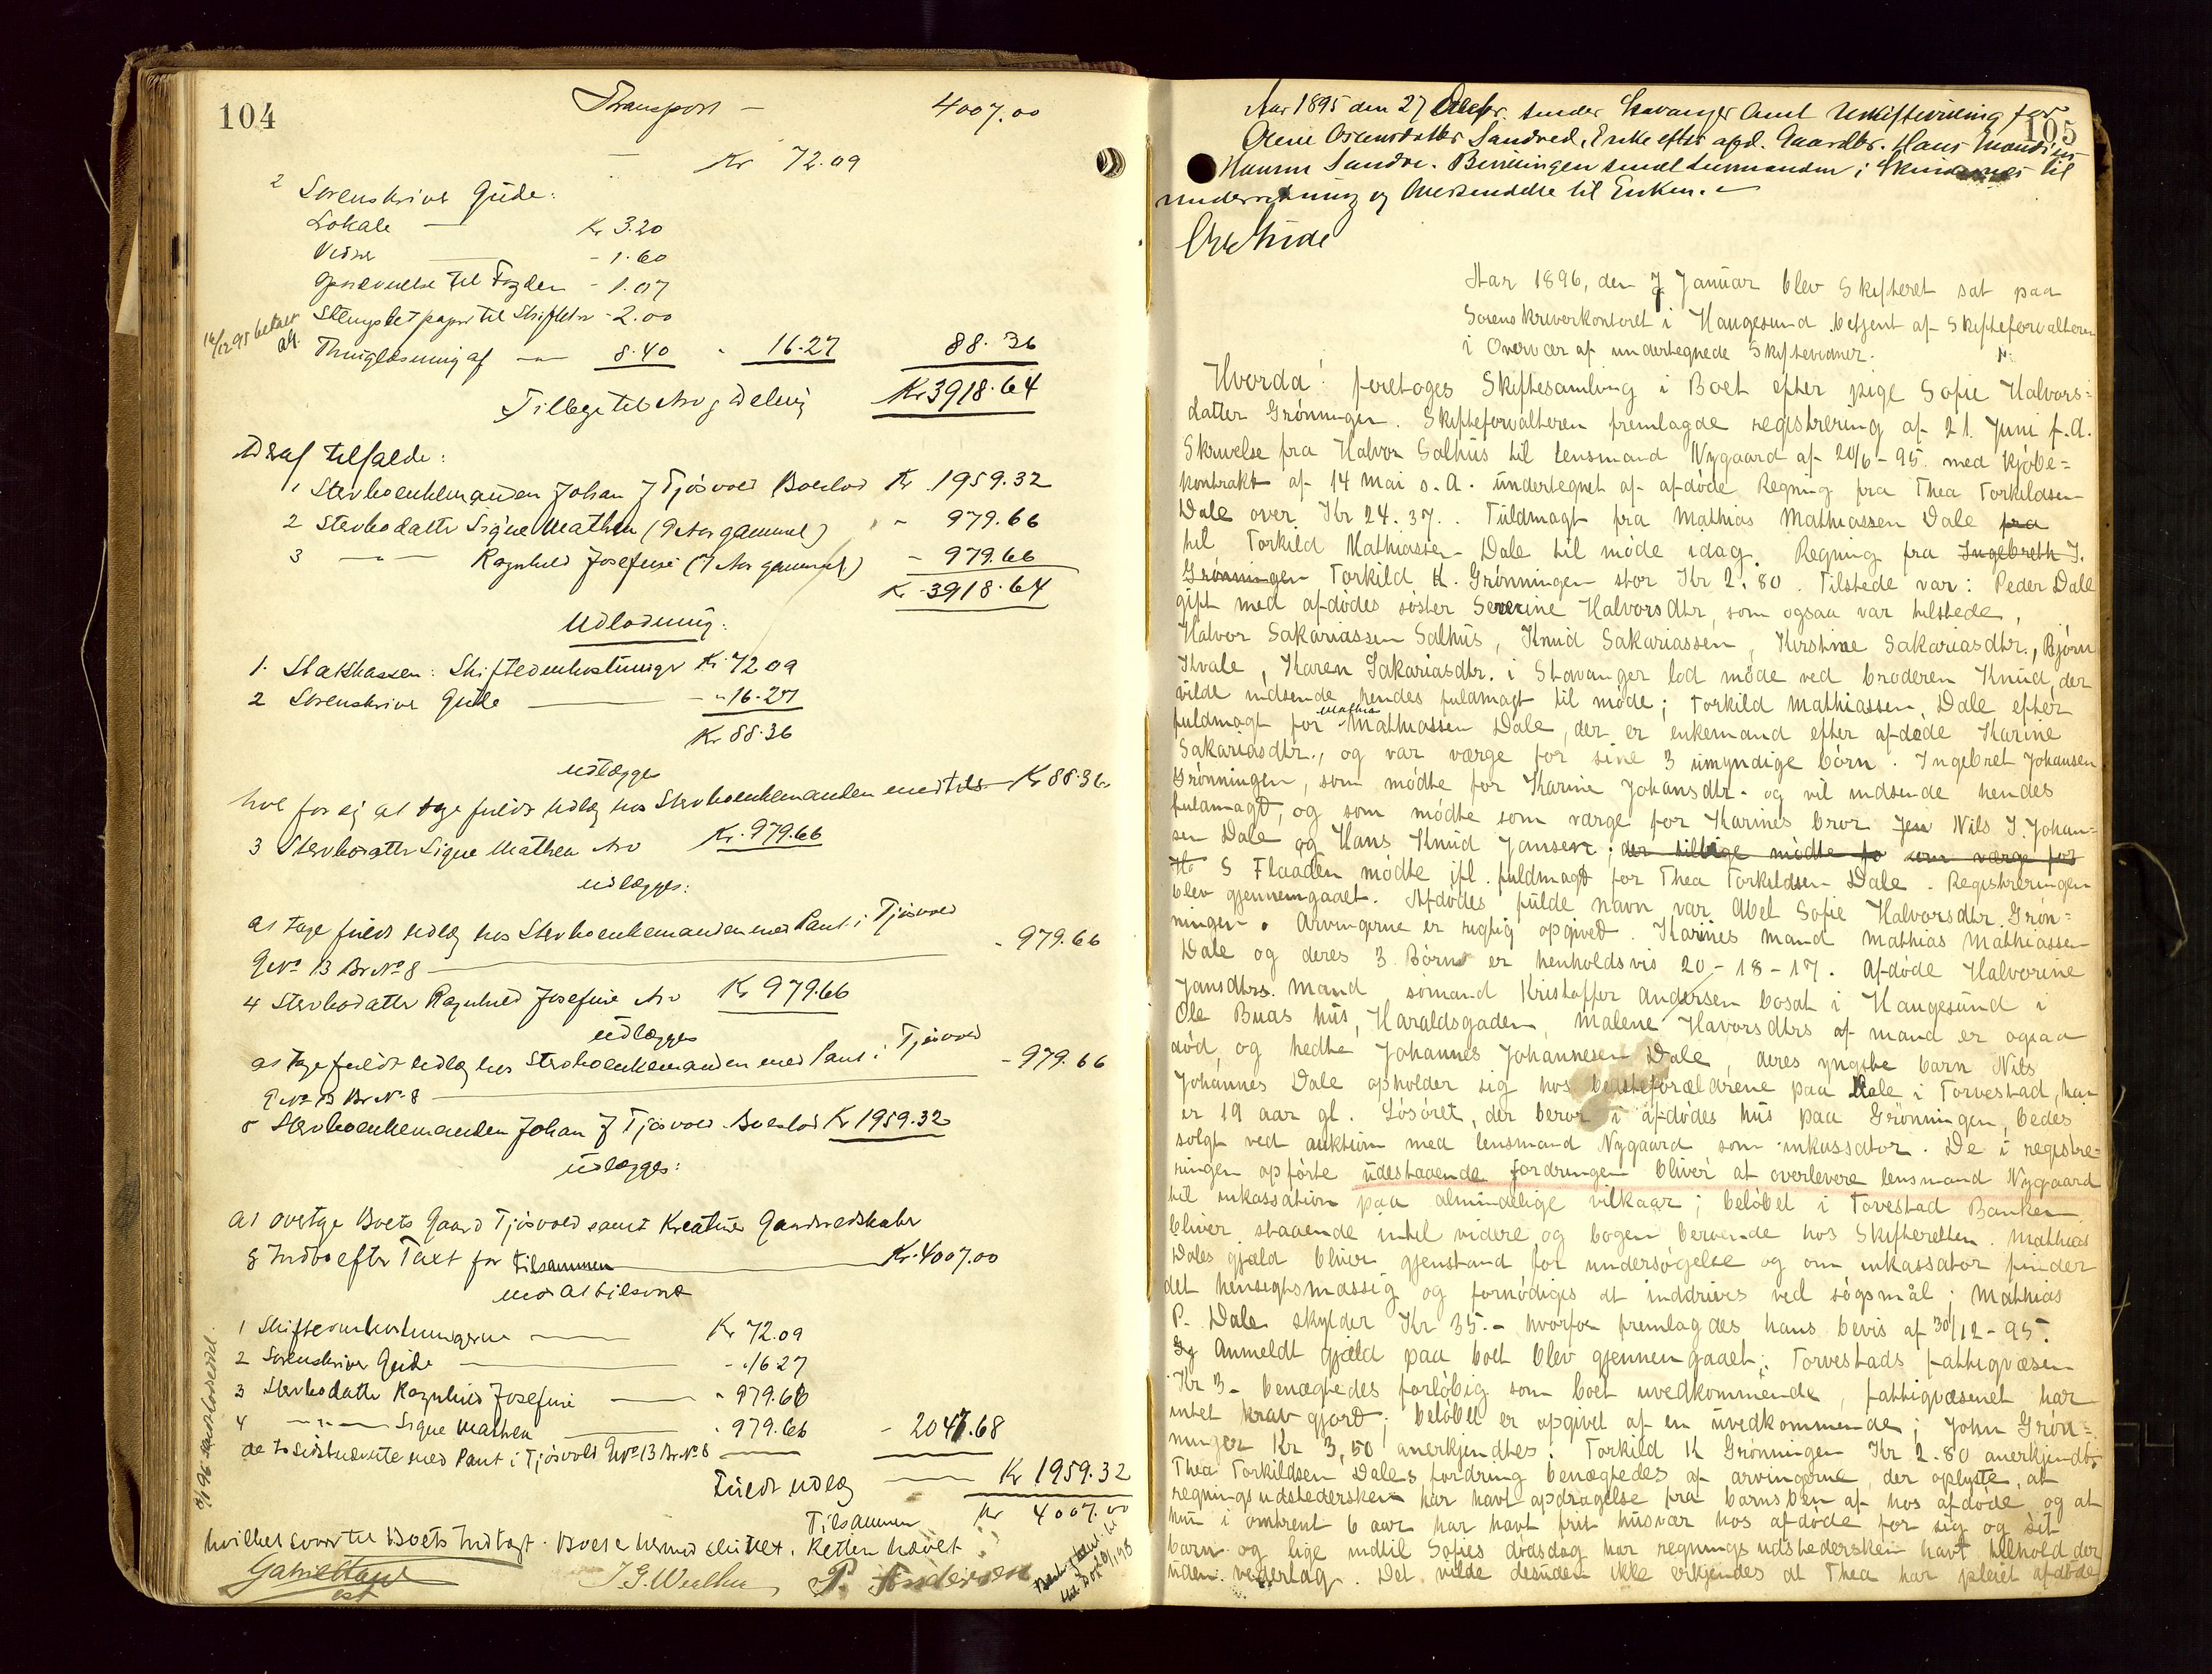 104
Transport – 4007.00
– Kr 72.09
2 Sorenskriver Gude:
Lokale — Kr 3.20
Vidner — - 1.60
Gjenævnelse til Fogden - 1.07
Stemplet papir til Skiftebr - 2.00
16/12 95 betalt
Thinglæsning af — 8.40 - 16.27 88.36
Tilbage til Arv og Deling Kr 3918.64
Deraf tilfalde:
1 Stervboenkemanden Johan J Tjøsvold Boeslod Kr 1959.32
2 Stervbodatter Signe Mathea (9 Aar gammel) - 979.66
3 — " — Ragnhild Josefine (7 Aar gammel) - 979.66
Kr 3918.64
Udlodning:
1. Statskassen: Skifteomkostninger Kr 72 09
2 Sorenskriver Gude — - 16.27
Kr 88.36
udlægges
hver for sig at tage fuldt Udlæg hos Stervboenkemanden med tils. Kr 88.36
3 Stervbodatter Signe Mathea Arv Kr. 979.66
udlægges:
at tage fuldt Udlæg hos Stervboenkemanden med Pant i Tjøsvold
GNo 13 BrNo 8 — - 979.66
4 Stervbodatter Ragnhild Josefine Arv Kr 979.66
udlægges
at tage fuldt Udlæg hos Stervboenkemanden med Pant i Tjøsvold
GNo 13 BrN. 8 — - 979.66
5 Stervboenkemanden Johan J Tjøsvold Boeslod Kr 1959.32
udlægges:
at overtage Boets Gaard Tjøsvold samt Kreaturer Gaardsredskaber
& Indbo efter Taxt for tilsammen — Kr. 4007.00
mod at tilsvare
1 Skifteomkostningerne — Kr 72.09
2 Sorenskriver Gude — - 16 27
3 Stervbodatter Ragnhild Josefine — - 979.66
4 — " — Signe Mathea — - 979.66 - 2047.68
de to sidstnævnte med Pant i Tjøsvold GNo 13 BrNo 8 —
Fuldt udlæg — Kr 1959.32
Tilsammen Kr 4007.00
hvilket svarer til Boets Indtægt. Boet er hermed sluttet. Retten hævet
P. Andersen
105
Aar 1895 den 27 Decbr. sender Stavanger Amt Uskiftebevilling for
Sandved, Enke efter afd. Gaardbr. Hans
Bevillingen sendt Lensmanden i Skudesnes til
underretning og Oversendelse til Enken.
Aar 1896, den 7 Januar blev Skifteret sat paa
Sorenskriverkontoret i Haugesund betjent af Skifteforvalteren
i Overvær af undertegnede Skiftevidner.
Hvorda! foretoges Skiftesamling i Boet efter pige Sofie Halvors=
datter Grønningen. Skifteforvalteren fremlagde registrering af 21. Juni f.A.
Skrivelse fra Halvor Salhus til lensmand Nygaard af 20/6-95 med kjøbe=
kontrakt af 14 Mai s.A. undertegnet af afdøde Regning fra Thea Torkildsen
Dale over Kr 24.37.. Fuldmagt fra Mathias Mathiassen Dale fra
til Torkild Mathiassen Dale til møde idag. Regning fra Ingebreth J.
Grønningen Torkild K. Grønningen stor Kr 2.80. Tilstede var: Peder Dale
gift med afdødes søster Severine Halvorsdtr, som ogsaa var tilstede,
Halvor Sakariassen Salhus, Knud Sakariassen, Kirstine Sakariasdtr., Bjørn
Kvale, Karen Sakariasdtr. i Stavanger lod møde ved broderen Knud, der
vilde indsende hendes fuldmagt til møde; Torkild Mathiassen Dale efter
fuldmagt for Mathias Mathiassen Dale, der er enkemand efter afdøde Karine
Sakariasdtr., og var værge for sine 3 umyndige børn. Ingebret Johansen
Grønningen, som mødte for Karine Johansdtr. og vil indsende hendes
fuldmagt, og som mødte som værge for Karines bror Jen Nils J. Johan=
sen Dale og Hans Knud Jansen; der tillige mødte fo som værge for
H S Flaaden mødte ifl. fuldmagt for Thea Torkildsen Dale. Registreringen
blev gjennemgaaet. Afdødes fulde navn var Abel Sofie Halvorsdtr. Grøn=
ningen. Arvingerne er rigtig opgived. Karines mand Mathias Mathiassen
Dale og deres 3 Børn er henholdsvis 20 - 18 - 17. Afdøde Halvorine
Jansdtrs. mand sømand Kristoffer Andersen bosat i Haugesund i
Ole Buas hus, Haraldsgaden, Malene Havorsdtrs af mand er ogsaa
død, og hedte Johannes Johannesen Dale, deres yngste barn Nils
Johannes Dale opholder sig hos bedsteforældrene paa Dale i Torvestad, han
er 19 aar gl. Løsøret, der beror i afdødes hus paa Grønningen, bedes
solgt ved auktion med lensmand Nygaard som inkassator. De i registre=
ringen opførte udestaaende fordringen bliver at overlevere lensmand Nygaard
til inkassation paa almindelige vilkaar; beløbet i Tovestad Banken
bliver staaende intil videre og bogen beroende hos Skifteretten. Mathias
Dales gjæld bliver gjenstand for undersøgelse og om inkassator finder
det hensigtsmæssig og fornødiges at inddrives ved søgsmål; Mathias
P. Dale skylder Kr 35.- hvorfor fremlagdes hans bevis af 30/12-95.
Anmeldt gjæld paa boet blev gjennemgaaet: Torvestads fattigvæsen
Kr 3- benægtedes forløbig som boet uvedkommende, fattigvæsenet har
intet krav gjord; beløbet er opgivet af en uvedkommende; John Grøn=
ningen Kr 3,50 anerkjendtes: Torkild K Grønningen Kr 2.80 anerkjendtes
Thea Torkildsen Dales fordring benægtedes af arvingerne, der oplyste, at
regningsudstedersken har havt opdragelse fra barnsben af hos afdøde, og at
hun i omtrent 6 aar har havt frit husvær hos afdøde for sig og sit
barn og lige indtil Sofies dødsdag har regningsudstedersken havt tilhold der
uden vederlag. Det vilde desuden ikke erkjendes at Thea har pleiet afdøde